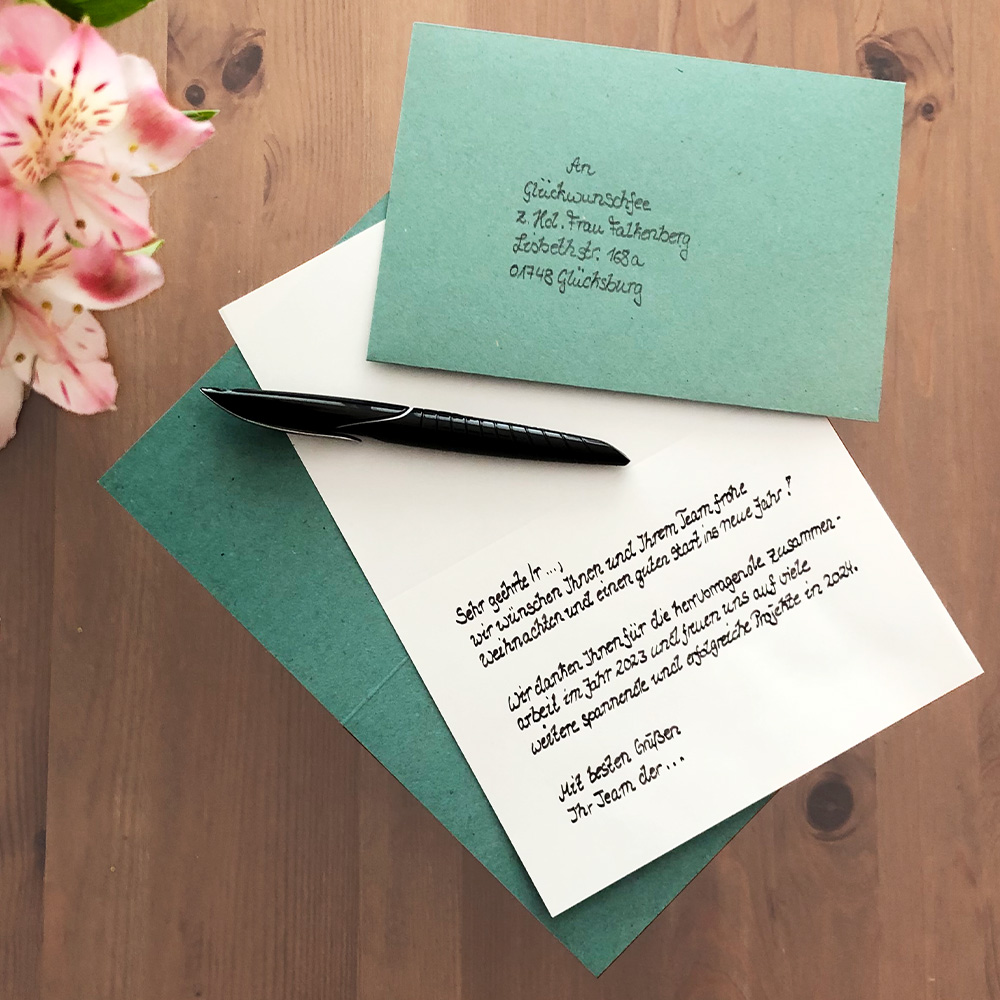 An
Glückwunschfee
z. Hd. Frau Falkenberg
Lisbethstr. 168a
01748 Glücksburg
Sehr geehrte/r ...,
wir wünschen Ihnen und Ihrem Team frohe
Weihnachten und einen guten Start ins neue Jahr!
Wir danken Ihnen für die hervorragende Zusammen-
arbeit im Jahr 2023 und freuen uns auf viele
weitere spannende und erfolgreiche Projekte in 2024.
Mit besten Grüßen
Ihr Team der ...